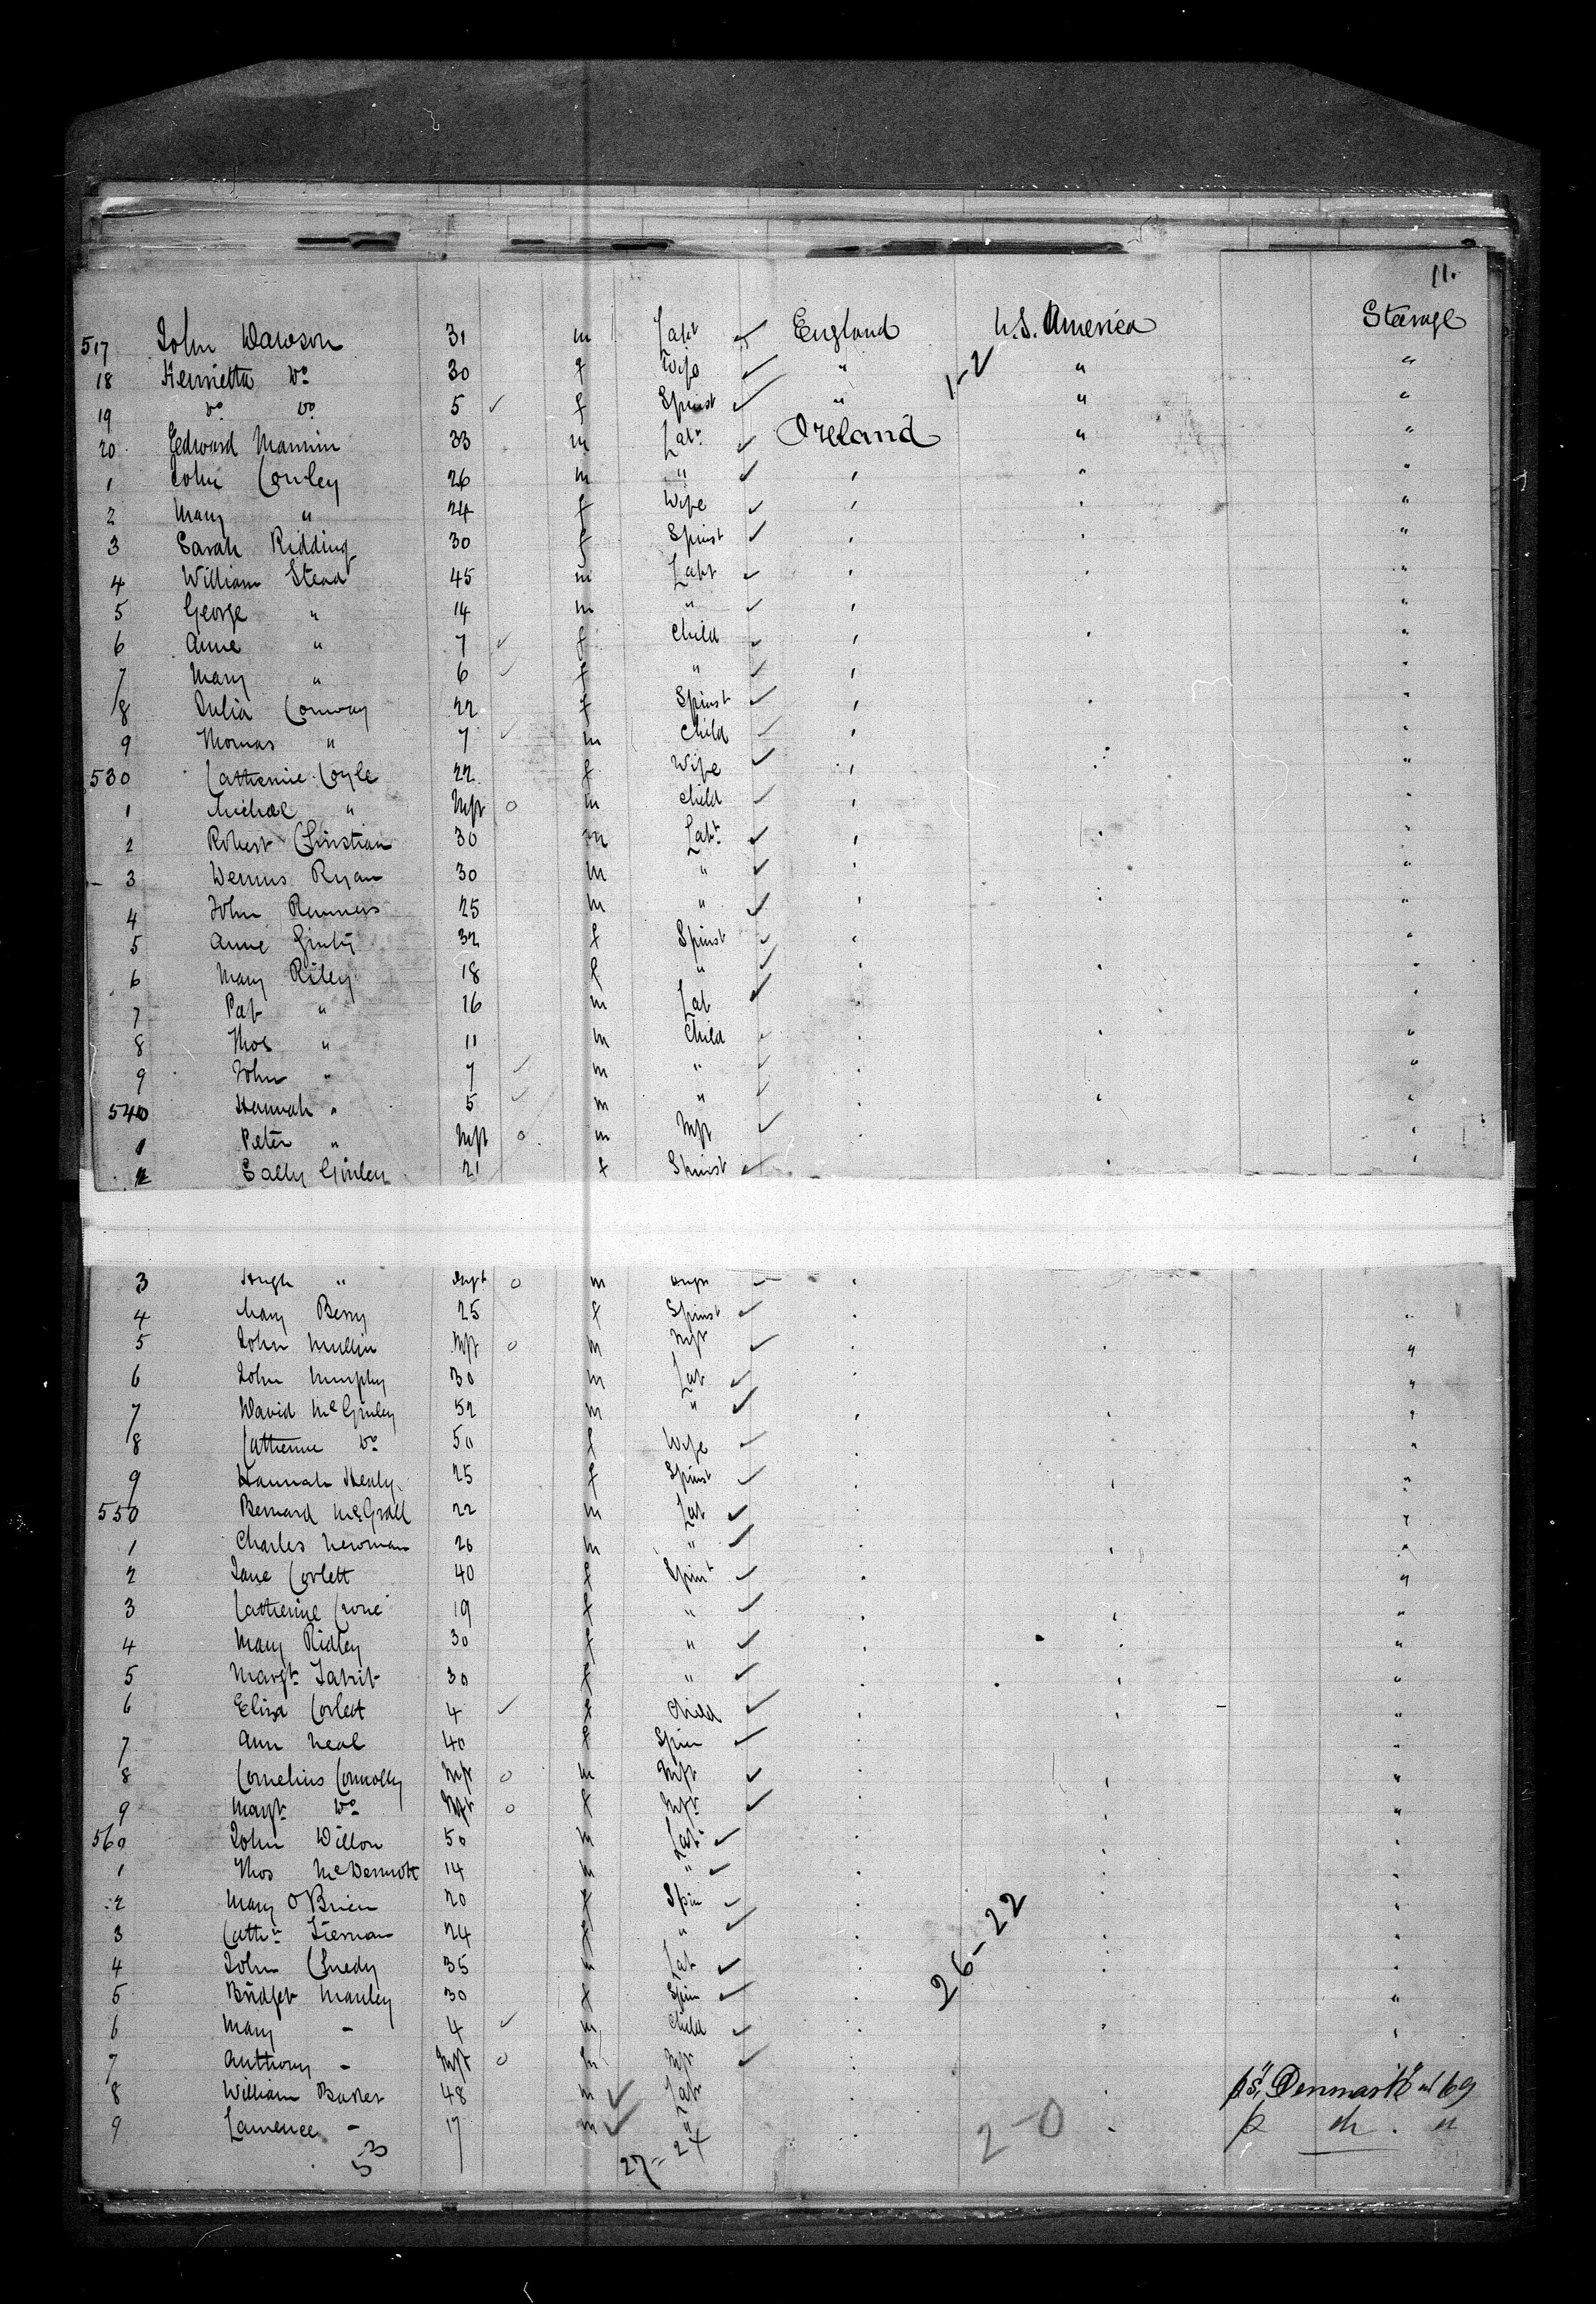 11.
517 John Dawson 31 m Labr England U.S. America Steerage
18 Henrietta Do 30 f Wife " " "
19 Do Do 5 f Spinst " " "
20 Edward Mannin 33 m Labr Ireland " "
1 John Conley 26 m " "
2 Mary " 24 f Wife "
3 Sarah Ridding 30 f Spinst "
4 William Stead 45 m Labr "
5 George " 14 m " "
6 Anne " 7 f Child "
7 Mary " 6 f " "
8 Julia Conway 22 f Spinst "
9 Thomas " 7 m Child "
530 Catherine Coyle 22 f Wife "
1 Michael " Inft o m Child "
2 Robert Christian 30 m Labr "
3 Dennis Ryan 30 m " "
4 John 25 m " "
5 Anne Ginty 32 f Spinst "
6 Mary Riley 18 f " "
7 Pat " 16 m Lab "
8 Thos " 11 m Child "
9 John " 7 m " "
540 Hannah " 5 m " "
1 Peter " Inft o m Inft "
2 Sally Ginley 21 f Spinst "
3 Hugh " Inft o m Inft
4 Mary Berry 25 f Spinst "
5 John Mullin Inft o m Inft "
6 John Murphy 30 m Lab "
7 David McGinley 52 m " "
8 Catherine Do 50 f Wife "
9 Hannah Healy 25 f Spinst "
550 Bernard McGrall 22 m Lab "
1 Charles Newman 26 m " "
2 Jane Corlett 40 f Spinst "
3 Catherine 19 f " "
4 Mary Ridley 30 f " "
5 Margt 30 f " "
6 Eliza Corlett 4 f Child "
7 Ann Neal 40 f Spin "
8 Cornelius Connolly Inft o m Inft "
9 Margt Do Inft o f Inft "
560 John Dillon 50 m Labr "
1 Thos McDermott 14 m " "
2 Mary O'Brien 20 f Spin "
3 Cathn Tiernan 24 f " "
4 John 35 m Lab "
5 Bridget Manley 30 f Spin "
6 Mary - 4 m Child "
7 Anthony - Inft o m Inft
8 William 48 m Labr p S, "Denmark"
9 Lawrence - 17 m " p do. "
1-2
26-22
20
53
27-24